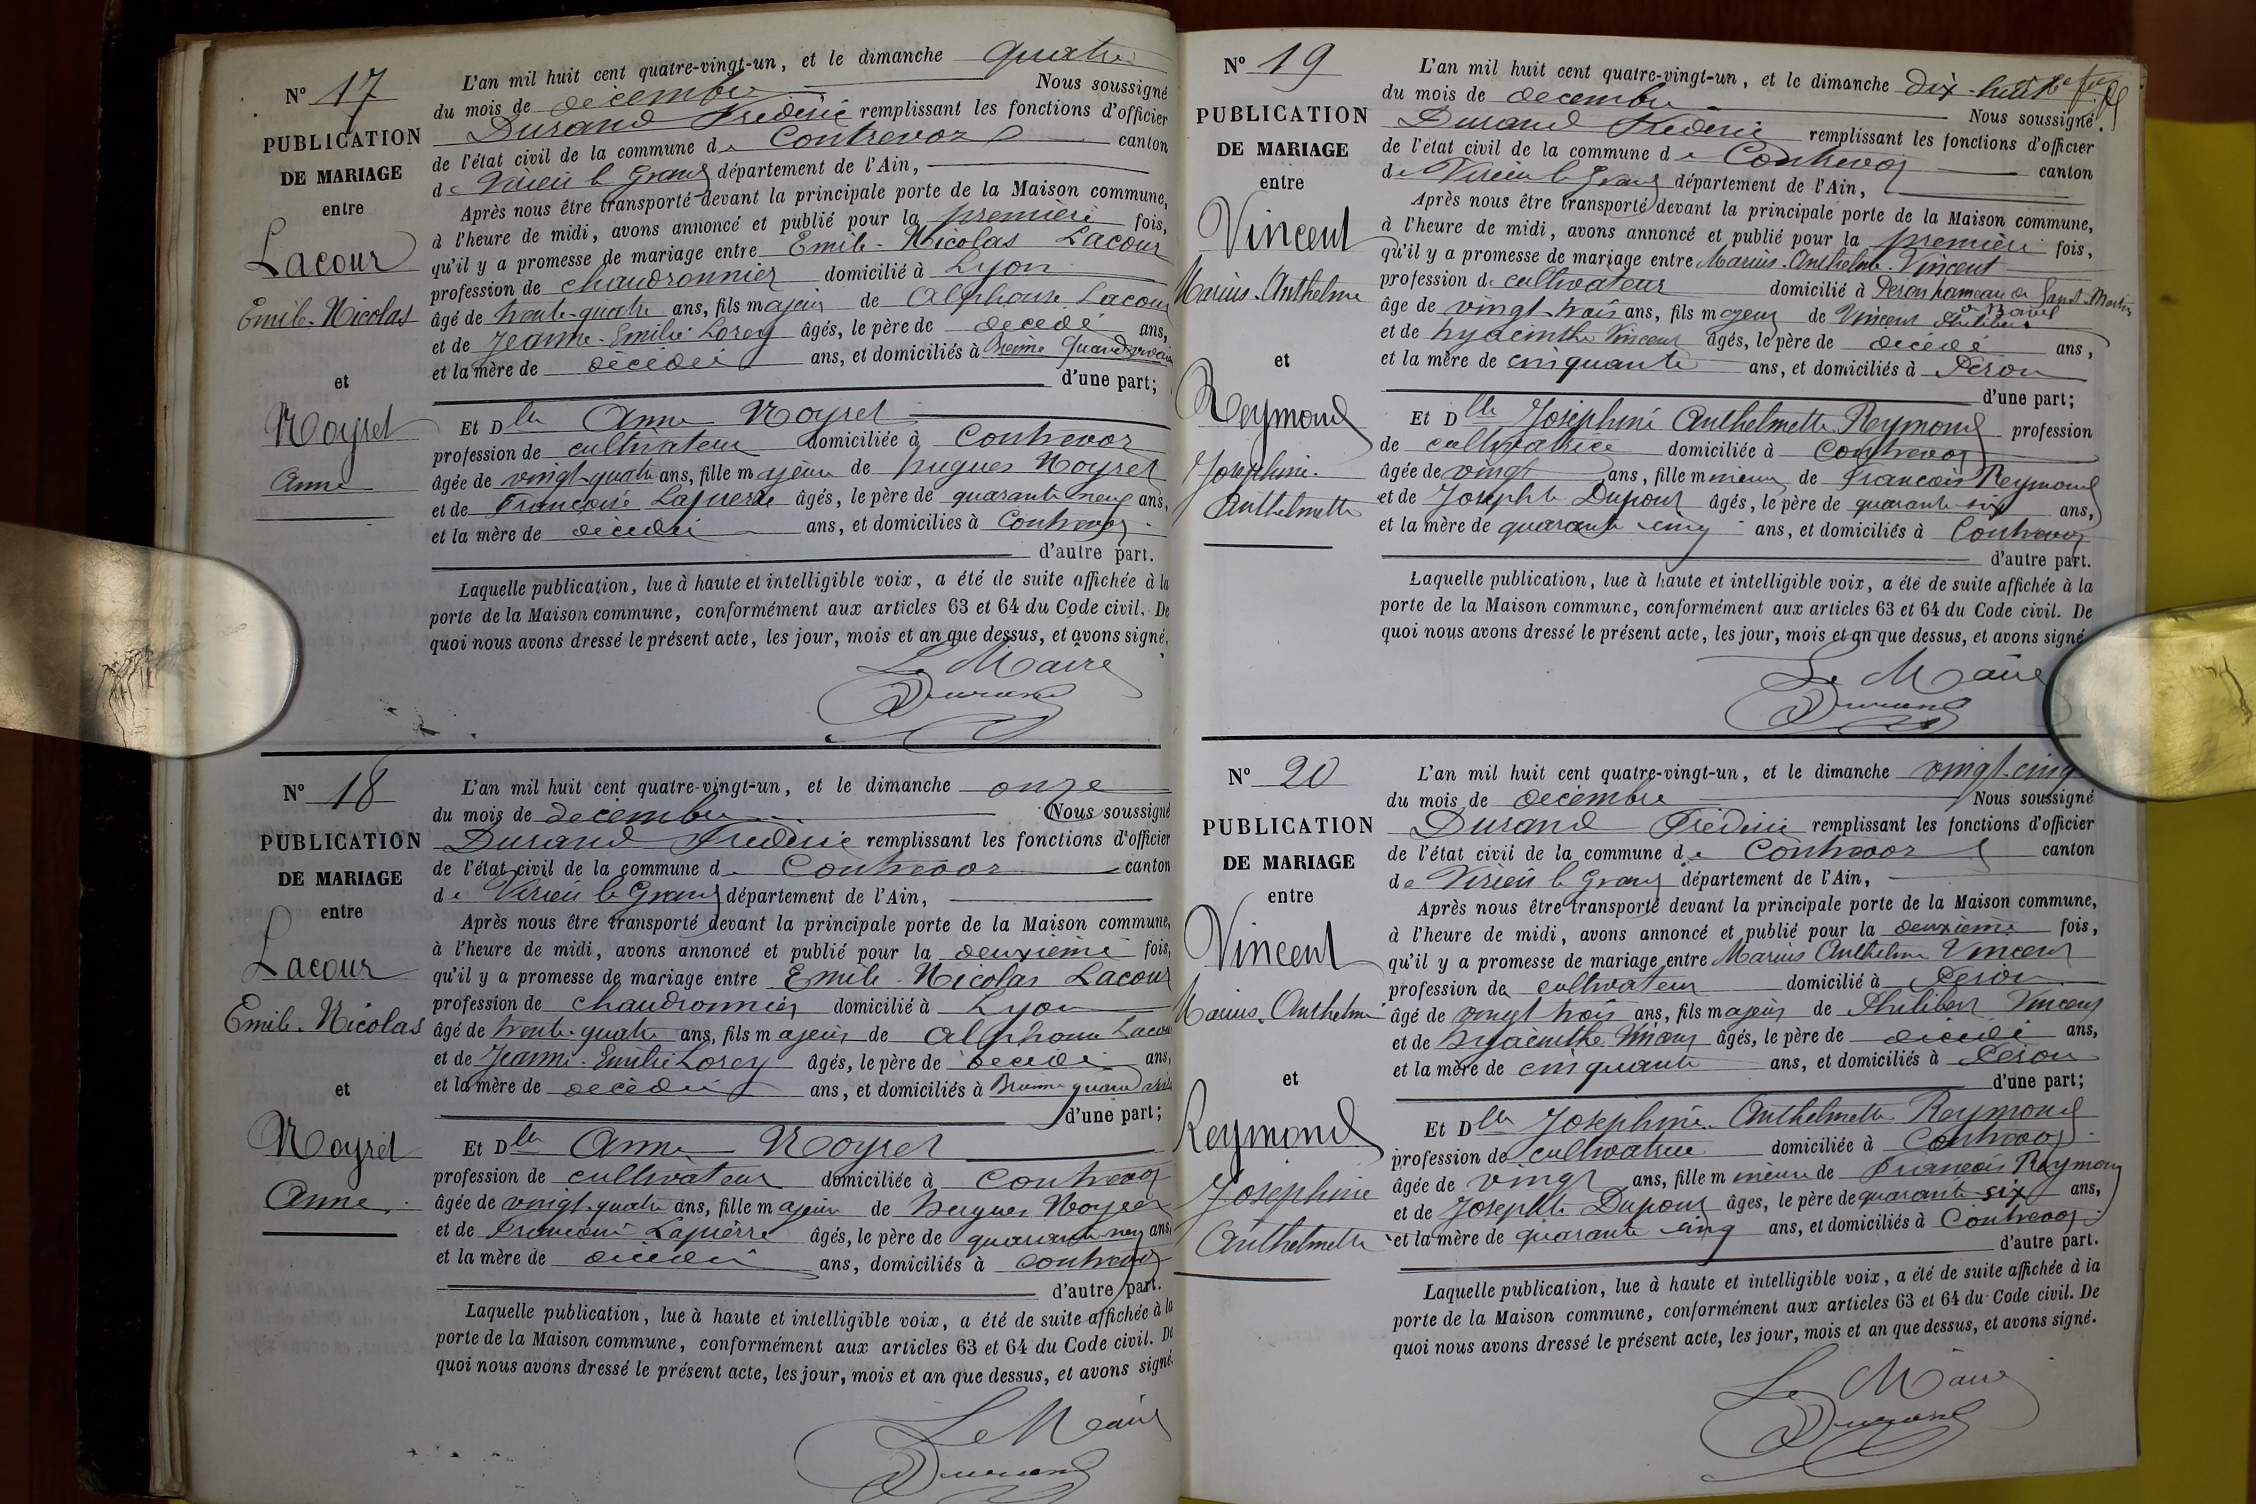 N° 17
PUBLICATION
DE MARIAGE
entre
Lacour
Emile-Nicolas
et
Noyret
Anne
L'an mil huit cent quatre-vingt-un, et le dimanche quatre
du mois de décembre Nous soussigné
Durand Frédéric remplissant les fonctions d'officier
de l'état civil de la commune de Contrevoz canton
de Virieu le Grand département de l'Ain,
Après nous être transporté devant la principale porte de la Maison commune,
à l'heure de midi, avons annoncé et publié pour la première fois,
qu'il y a promesse de mariage entre Emile-Nicolas Lacour
profession de chaudronnier domicilié à Lyon
âgé de trente-quatre ans, fils majeur de Alphonse Lacour
et de Jeanne-Emilie Lorey âgés, le père de décédé ans,
et la mère de décédée ans, et domiciliés à quand
d'une part;
Et Dlle Anne Noyret
profession de cultivateur domiciliée à Contrevoz
âgée de vingt-quatre ans, fille majeure de hugues Noyret
et de Françoise Lapierre âgés, le père de quarante neuf ans,
et la mère de décédée ans, et domiciliés à Contrevoz
d'autre part.
Laquelle publication, lue à haute et intelligible voix, a été de suite affichée à la
porte de la Maison commune, conformément aux articles 63 et 64 du Code civil. De
quoi nous avons dressé le présent acte, les jour, mois et an que dessus, et avons signé.
Le Maire
Durand
N° 18
PUBLICATION
DE MARIAGE
entre
Lacour
Emile-Nicolas
et
Noyret
Anne
L'an mil huit cent quatre-vingt-un, et le dimanche onze
du mois de décembre Nous soussigné
Durand Frédéric remplissant les fonctions d'officier
de l'état civil de la commune de Contrevoz canton
de Virieu le Grand département de l'Ain,
Après nous être transporté devant la principale porte de la Maison commune,
à l'heure de midi, avons annoncé et publié pour la deuxième fois,
qu'il y a promesse de mariage entre Emile-Nicolas Lacour
profession de chaudronnier domicilié à Lyon
âgé de trente-quatre ans, fils majeur de Alphonse Lacour
et de Jeanne-Emilie Lorey âgés, le père de décédé ans,
et la mère de décédée ans, et domiciliés à quand
d'une part;
Et Dlle Anne Noyret
profession de cultivateur domiciliée à Contrevoz
âgée de vingt-quatre ans, fille majeure de hugues Noyret
et de Françoise Lapierre âgés, le père de quarante neuf ans,
et la mère de décédée ans, domiciliés à Contrevoz
d'autre part.
Laquelle publication, lue à haute et intelligible voix, a été de suite affichée à la
porte de la Maison commune, conformément aux articles 63 et 64 du Code civil. De
quoi nous avons dressé le présent acte, les jour, mois et an que dessus, et avons signé.
Le Maire
Durand
N° 19
PUBLICATION
DE MARIAGE
entre
Vincent
Marius-Anthelme
et
Reymond
Joséphine-
Anthelmette
L'an mil huit cent quatre-vingt-un, et le dimanche dix-huit
du mois de décembre Nous soussigné
Durand Frédéric remplissant les fonctions d'officier
de l'état civil de la commune de Contrevoz canton
de Virieu le Grand département de l'Ain,
Après nous être transporté devant la principale porte de la Maison commune,
à l'heure de midi, avons annoncé et publié pour la première fois,
qu'il y a promesse de mariage entre Marius-Anthelme Vincent
profession de cultivateur domicilié à Peron hameau de
âgé de vingt-trois ans, fils majeur de Vincent Philibert
et de hyacinthe Vincent âgés, le père de décédé ans,
et la mère de cinquante ans, et domiciliés à Péron
d'une part;
Et Dlle Joséphine Anthelmette Reymond profession
de cultivatrice domiciliée à Contrevoz
âgée de vingt ans, fille mineure de François Reymond
et de Josephte Dupont âgés, le père de quarante-six ans,
et la mère de quarante-cinq ans, et domiciliés à Contrevoz
d'autre part.
Laquelle publication, lue à haute et intelligible voix, a été de suite affichée à la
porte de la Maison commune, conformément aux articles 63 et 64 du Code civil. De
quoi nous avons dressé le présent acte, les jour, mois et an que dessus, et avons signé
Le Maire
Durand
N° 20
PUBLICATION
DE MARIAGE
entre
Vincent
Marius-Anthelme
et
Reymond
Joséphine
Anthelmette
L'an mil huit cent quatre-vingt-un, et le dimanche vingt-cinq
du mois de décembre Nous soussigné
Durand Frédéric remplissant les fonctions d'officier
de l'état civil de la commune de Contrevoz canton
de Virieu le Grand département de l'Ain,
Après nous être transporté devant la principale porte de la Maison commune,
à l'heure de midi, avons annoncé et publié pour la deuxième fois,
qu'il y a promesse de mariage entre Marius Anthelme Vincent
profession de cultivateur domicilié à Péron
âgé de vingt trois ans, fils majeur de Philibert Vincent
et de hyacinthe Vincent âgés, le père de décédé ans,
et la mère de cinquante ans, et domiciliés à Péron
d'une part;
Et Dlle Joséphine-Anthelmette Reymond
profession de cultivatrice domiciliée à Contrevoz
âgée de vingt ans, fille mineure de François Reymond
et de Josephte Dupont âgés, le père de quarante-six ans,
et la mère de quarante cinq ans, et domiciliés à Contrevoz
d'autre part.
Laquelle publication, lue à haute et intelligible voix, a été de suite affichée à la
porte de la Maison commune, conformément aux articles 63 et 64 du Code civil. De
quoi nous avons dressé le présent acte, les jour, mois et an que dessus, et avons signé.
Le Maire
Durand